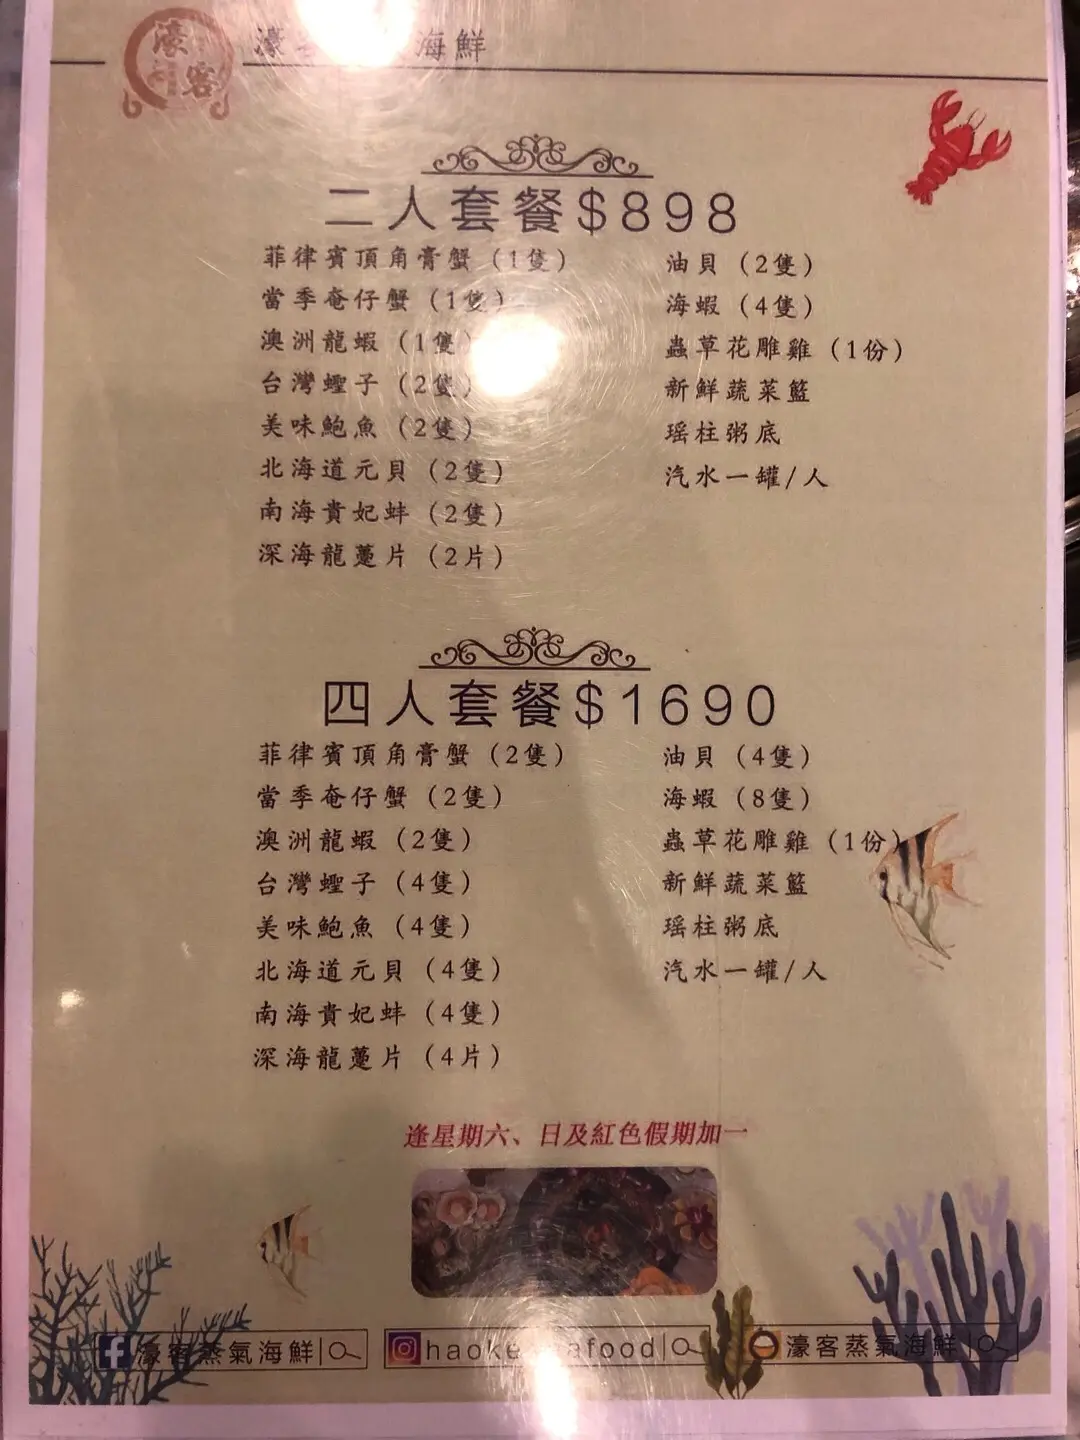 濠客
濠 海鮮
二人套餐$898
菲律賓頂角膏蟹（1隻）
當季奄仔蟹（1隻）
澳洲龍蝦（1隻
台灣蟶子（2隻）
美味鮑魚（2隻）
北海道元貝（2隻）
南海貴妃蚌（2隻）
深海龍躉片（2片）
油貝（2隻）
海蝦（4隻）
蟲草花雕雞（1份）
新鮮蔬菜籃
瑶柱粥底
汽水一罐/人
四人套餐$1690
菲律賓頂角膏蟹（2隻）
當季奄仔蟹（2隻）
澳洲龍蝦（2隻）
台灣蟶子（4隻）
美味鮑魚（4隻）
北海道元貝（4隻）
南海貴妃蚌（4隻）
深海龍躉片（4片）
油貝（4隻）
海蝦（8隻）
蟲草花雕雞（1份）
新鮮蔬菜籃
瑶柱粥底
汽水一罐/人
逢星期六、日及紅色假期加一
濠客蒸氣海鮮
haoke afood
濠客蒸氣海鮮